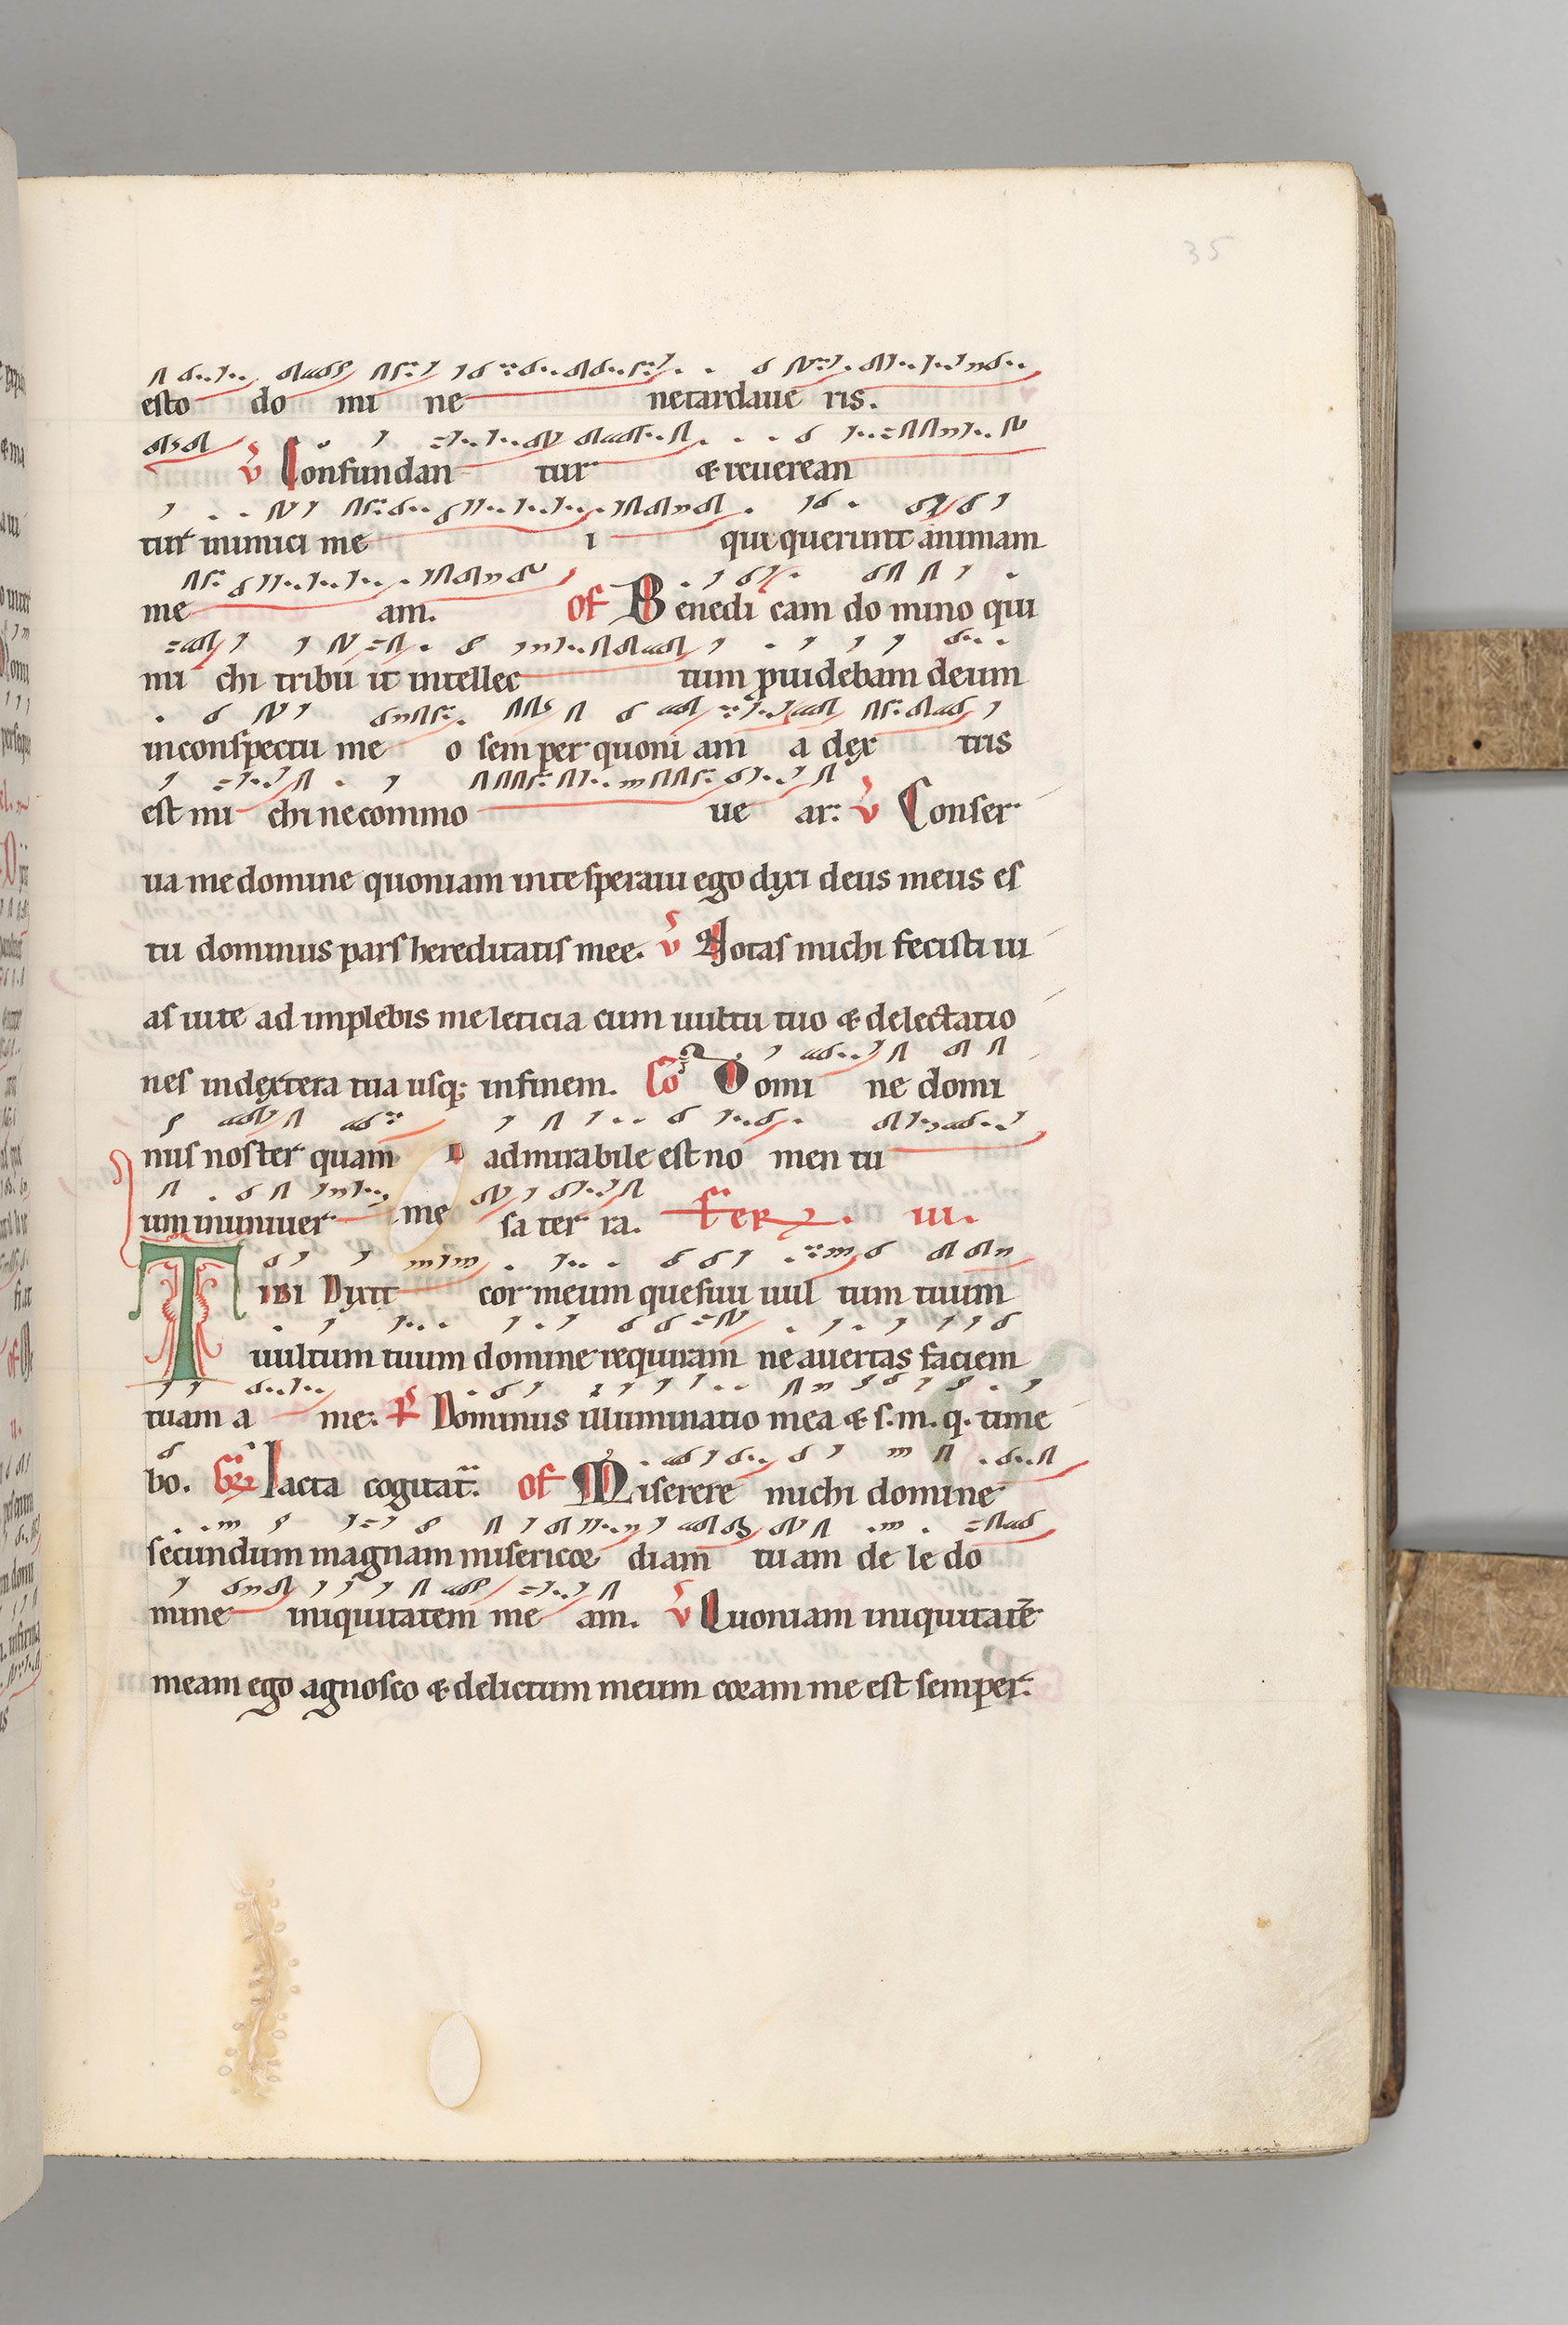 35
esto do mi ne netardaue ris.
v Confundan tur & reuerean
tur inimici me i qui querunt animam
me am. of Benedi cam do mino qui
mi chi tribu it intellec tum puidebam deum
inconspectu me o sem per quoni am a dex tris
est mi chi ne commo ue ar: v Conser
ua me domine quoniam inte speraui ego dixi deus meus es
tu dominus pars hereditatis mee. v Notas michi fecisti ui
as uite ad implebis me leticia cum uultu tuo & delectatio
nes indextera tua usq; infinem. Co Domi ne domi
nus noster quam admirabile est no men tu
um inuniuer me sa ter ra. Fer iii.
TIBI Dixit cor meum quesiui uul tum tuum
uultum tuum domine requiram ne auertas faciem
tuam a me: Ps Dominus illuminatio mea & s. m. q. time
bo. Gr Iacta cogitat. of Miserere michi domine
secundum magnam misericor diam tu am de le do
mine iniquitatem me am. v Quoniam iniquitatē
meam ego agnosco & delictum meum coram me est semper.